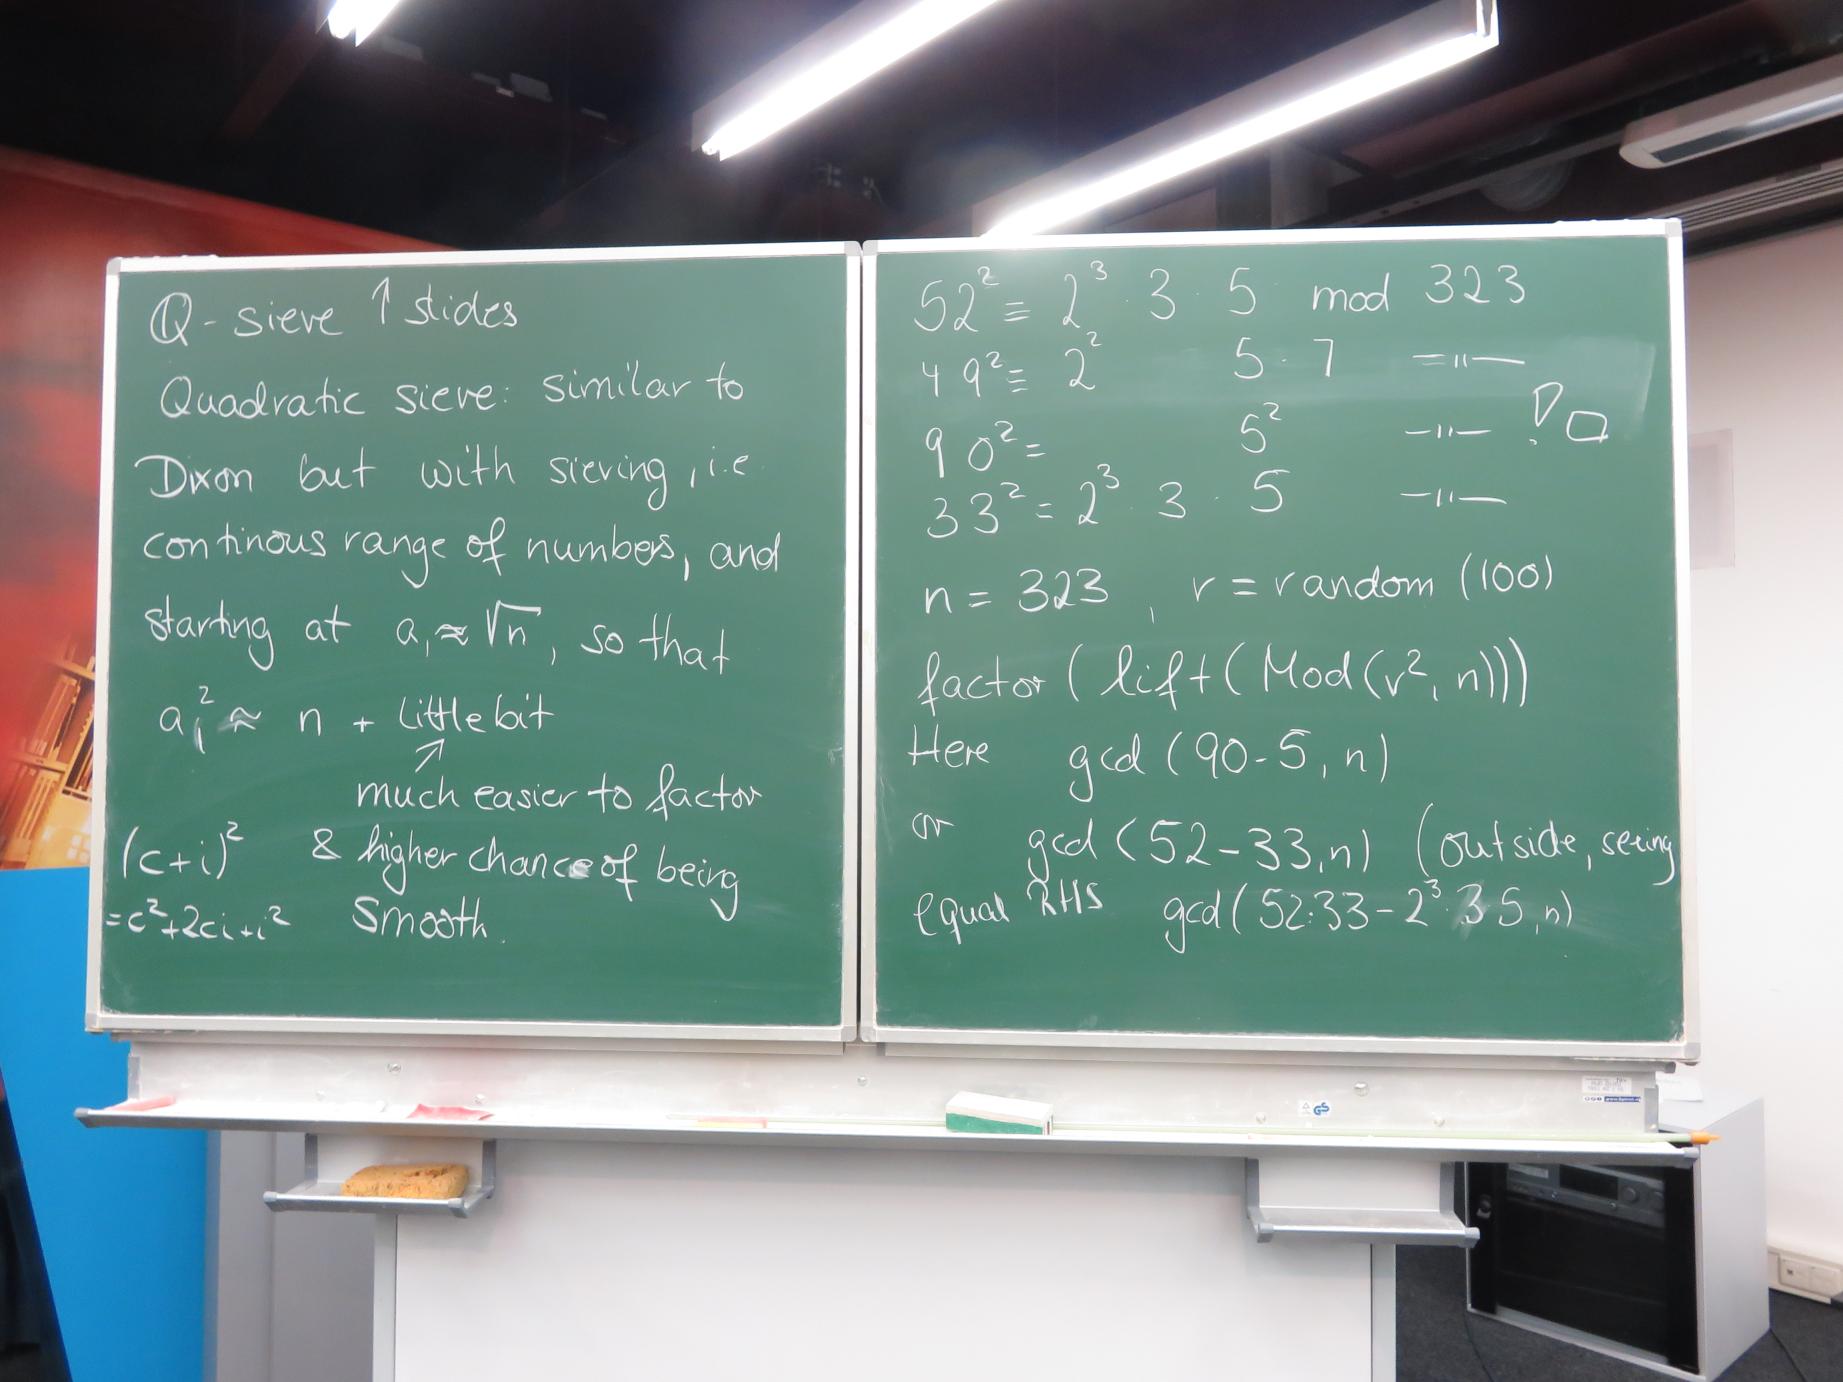 Q-sieve ↑ slides
Quadratic sieve: similar to
Dixon but with sieving, i.e.
continous range of numbers, and
starting at a₁ ≈ √n, so that
a₁² ≈ n + little bit
↗
much easier to factor
& higher chance of being
smooth.
(c+i)²
=c²+2ci+i²
52² ≡ 2³ · 3 · 5 mod 323
49² ≡ 2² 5 · 7 =〃—
90² = 5² —〃— ! □
33² = 2³ · 3 · 5 —〃—
n = 323, r = random (100)
factor (lift(Mod(r², n)))
Here gcd (90-5, n)
or gcd (52-33, n) (outside, seeing
equal RHS gcd(52·33 - 2³·3·5, n)